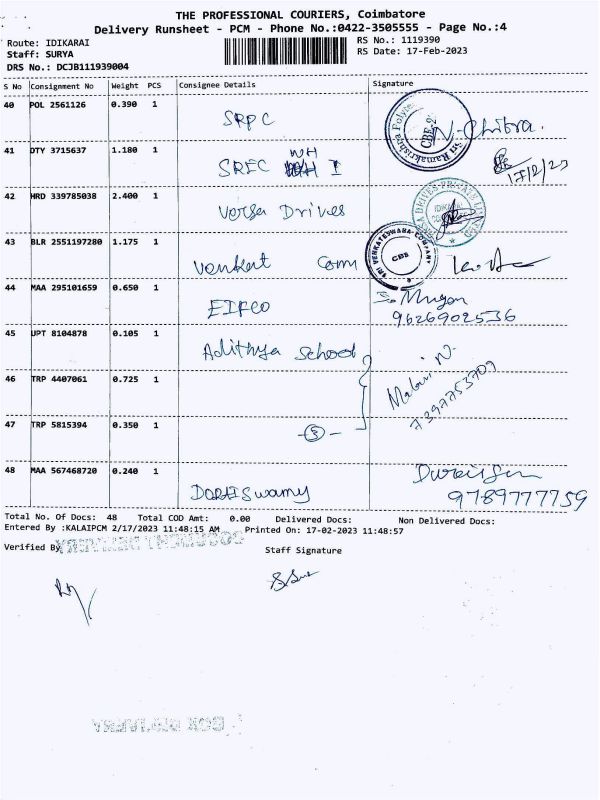 THE PROFESSIONAL COURIERS, Coimbatore
Delivery Runsheet - PCM - Phone No.:0422-3505555 - Page No.:4
Route: IDIKARAI
RS No.: 1119390
Staff: SURYA
RS Date: 17-Feb-2023
DRS No.: DCJB111939004
S No Consignment No Weight PCS Consignee Details Signature
40 POL 2561126 0.390 1 SRPC N. Chitra.
Sri Ramakrishna Polyte
CBE-2
41 DTY 3715637 1.180 1 SREC WH I
17/2/23
42 HRD 339785038 2.400 1 Versa Drives
VERSA DRIVES PRIVATE LIMITED
43 BLR 2551197280 1.175 1 Venkat Com
SRI VENKATESWARA COMPANY
CBE
44 MAA 295101659 0.650 1 EIFCO
Mugan
9626902536
45 UPT 8104878 0.105 1 Adithya School
46 TRP 4407061 0.725 1
7397753709
47 TRP 5815394 0.350 1
48 MAA 567468720 0.240 1 DoraiSwamy
9789777759
Total No. Of Docs: 48 Total COD Amt: 0.00 Delivered Docs: Non Delivered Docs:
Entered By :KALAIPCM 2/17/2023 11:48:15 AM Printed On: 17-02-2023 11:48:57
Verified By
Staff Signature